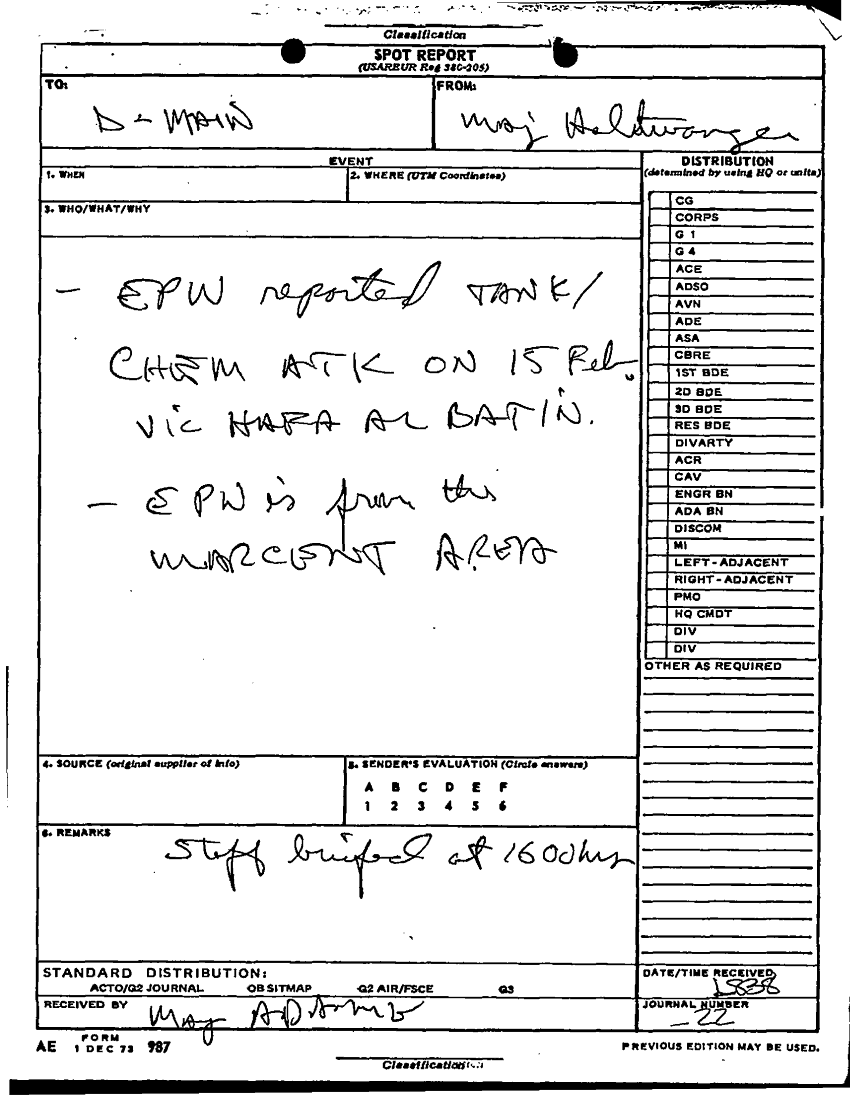 Classification
SPOT REPORT
(USAREUR Reg 380-205)
TO:
D - MAIN
FROM:
Maj Holdtwanger
EVENT
1. WHEN
2. WHERE (UTM Coordinates)
3. WHO/WHAT/WHY
- EPW reported TANK/
CHEM ATK ON 15 Feb.
Vic HAFA AL BATIN.
- EPW is from the
MARCENT AREA
DISTRIBUTION
(determined by using HQ or units)
CG
CORPS
G 1
G 4
ACE
ADSO
AVN
ADE
ASA
CBRE
1ST BDE
2D BDE
3D BDE
RES BDE
DIVARTY
ACR
CAV
ENGR BN
ADA BN
DISCOM
MI
LEFT-ADJACENT
RIGHT-ADJACENT
PMO
HQ CMDT
DIV
DIV
OTHER AS REQUIRED
4. SOURCE (original supplier of info)
5. SENDER'S EVALUATION (Circle answers)
A B C D E F
1 2 3 4 5 6
6. REMARKS
Staff briefed at 1600hrs
STANDARD DISTRIBUTION:
ACTO/G2 JOURNAL OB SITMAP G2 AIR/FSCE G3
RECEIVED BY
May
DATE/TIME RECEIVED
1838
JOURNAL NUMBER
22
AE FORM 1 DEC 73 987
PREVIOUS EDITION MAY BE USED.
Classification